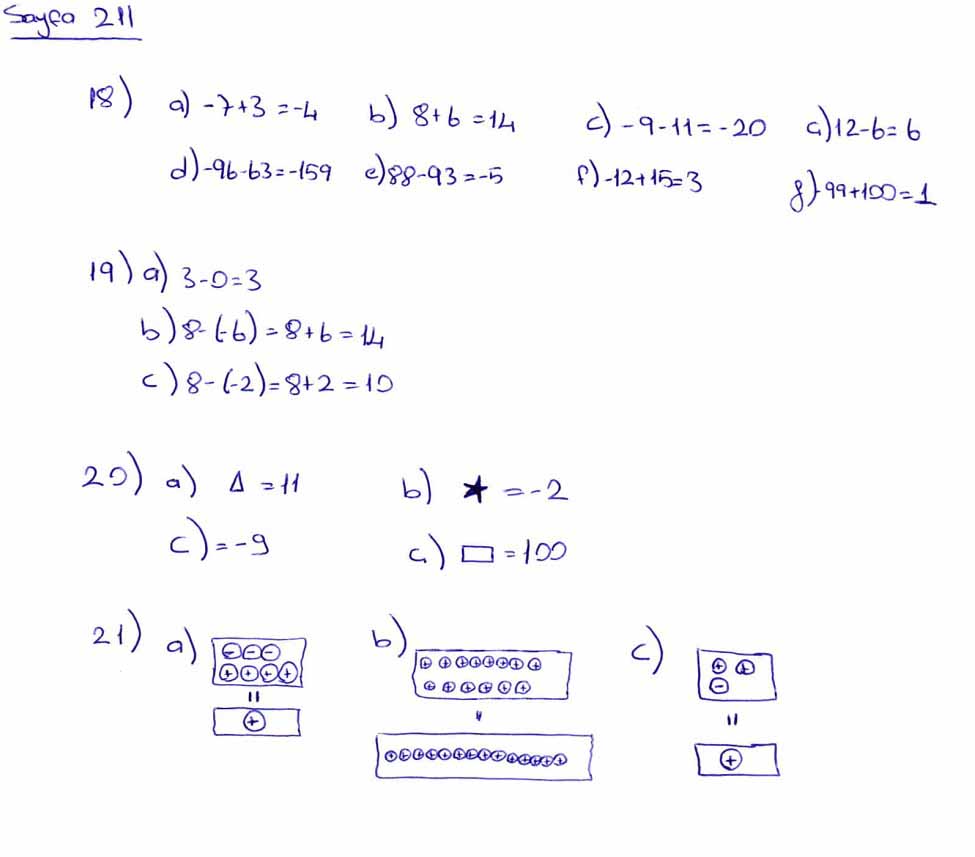 Sayfa 211
18) a) -7+3 = -4 b) 8+6 = 14 c) -9-11 = -20 ç) 12-6 = 6
d) -96-63 = -159 e) 88-93 = -5 f) -12+15 = 3 g) -99+100 = 1
19) a) 3-0 = 3
b) 8-(-6) = 8+6 = 14
c) 8-(-2) = 8+2 = 10
20) a) Δ = 11 b) ★ = -2
c) = -9 ç) □ = 100
21) a) b) c)